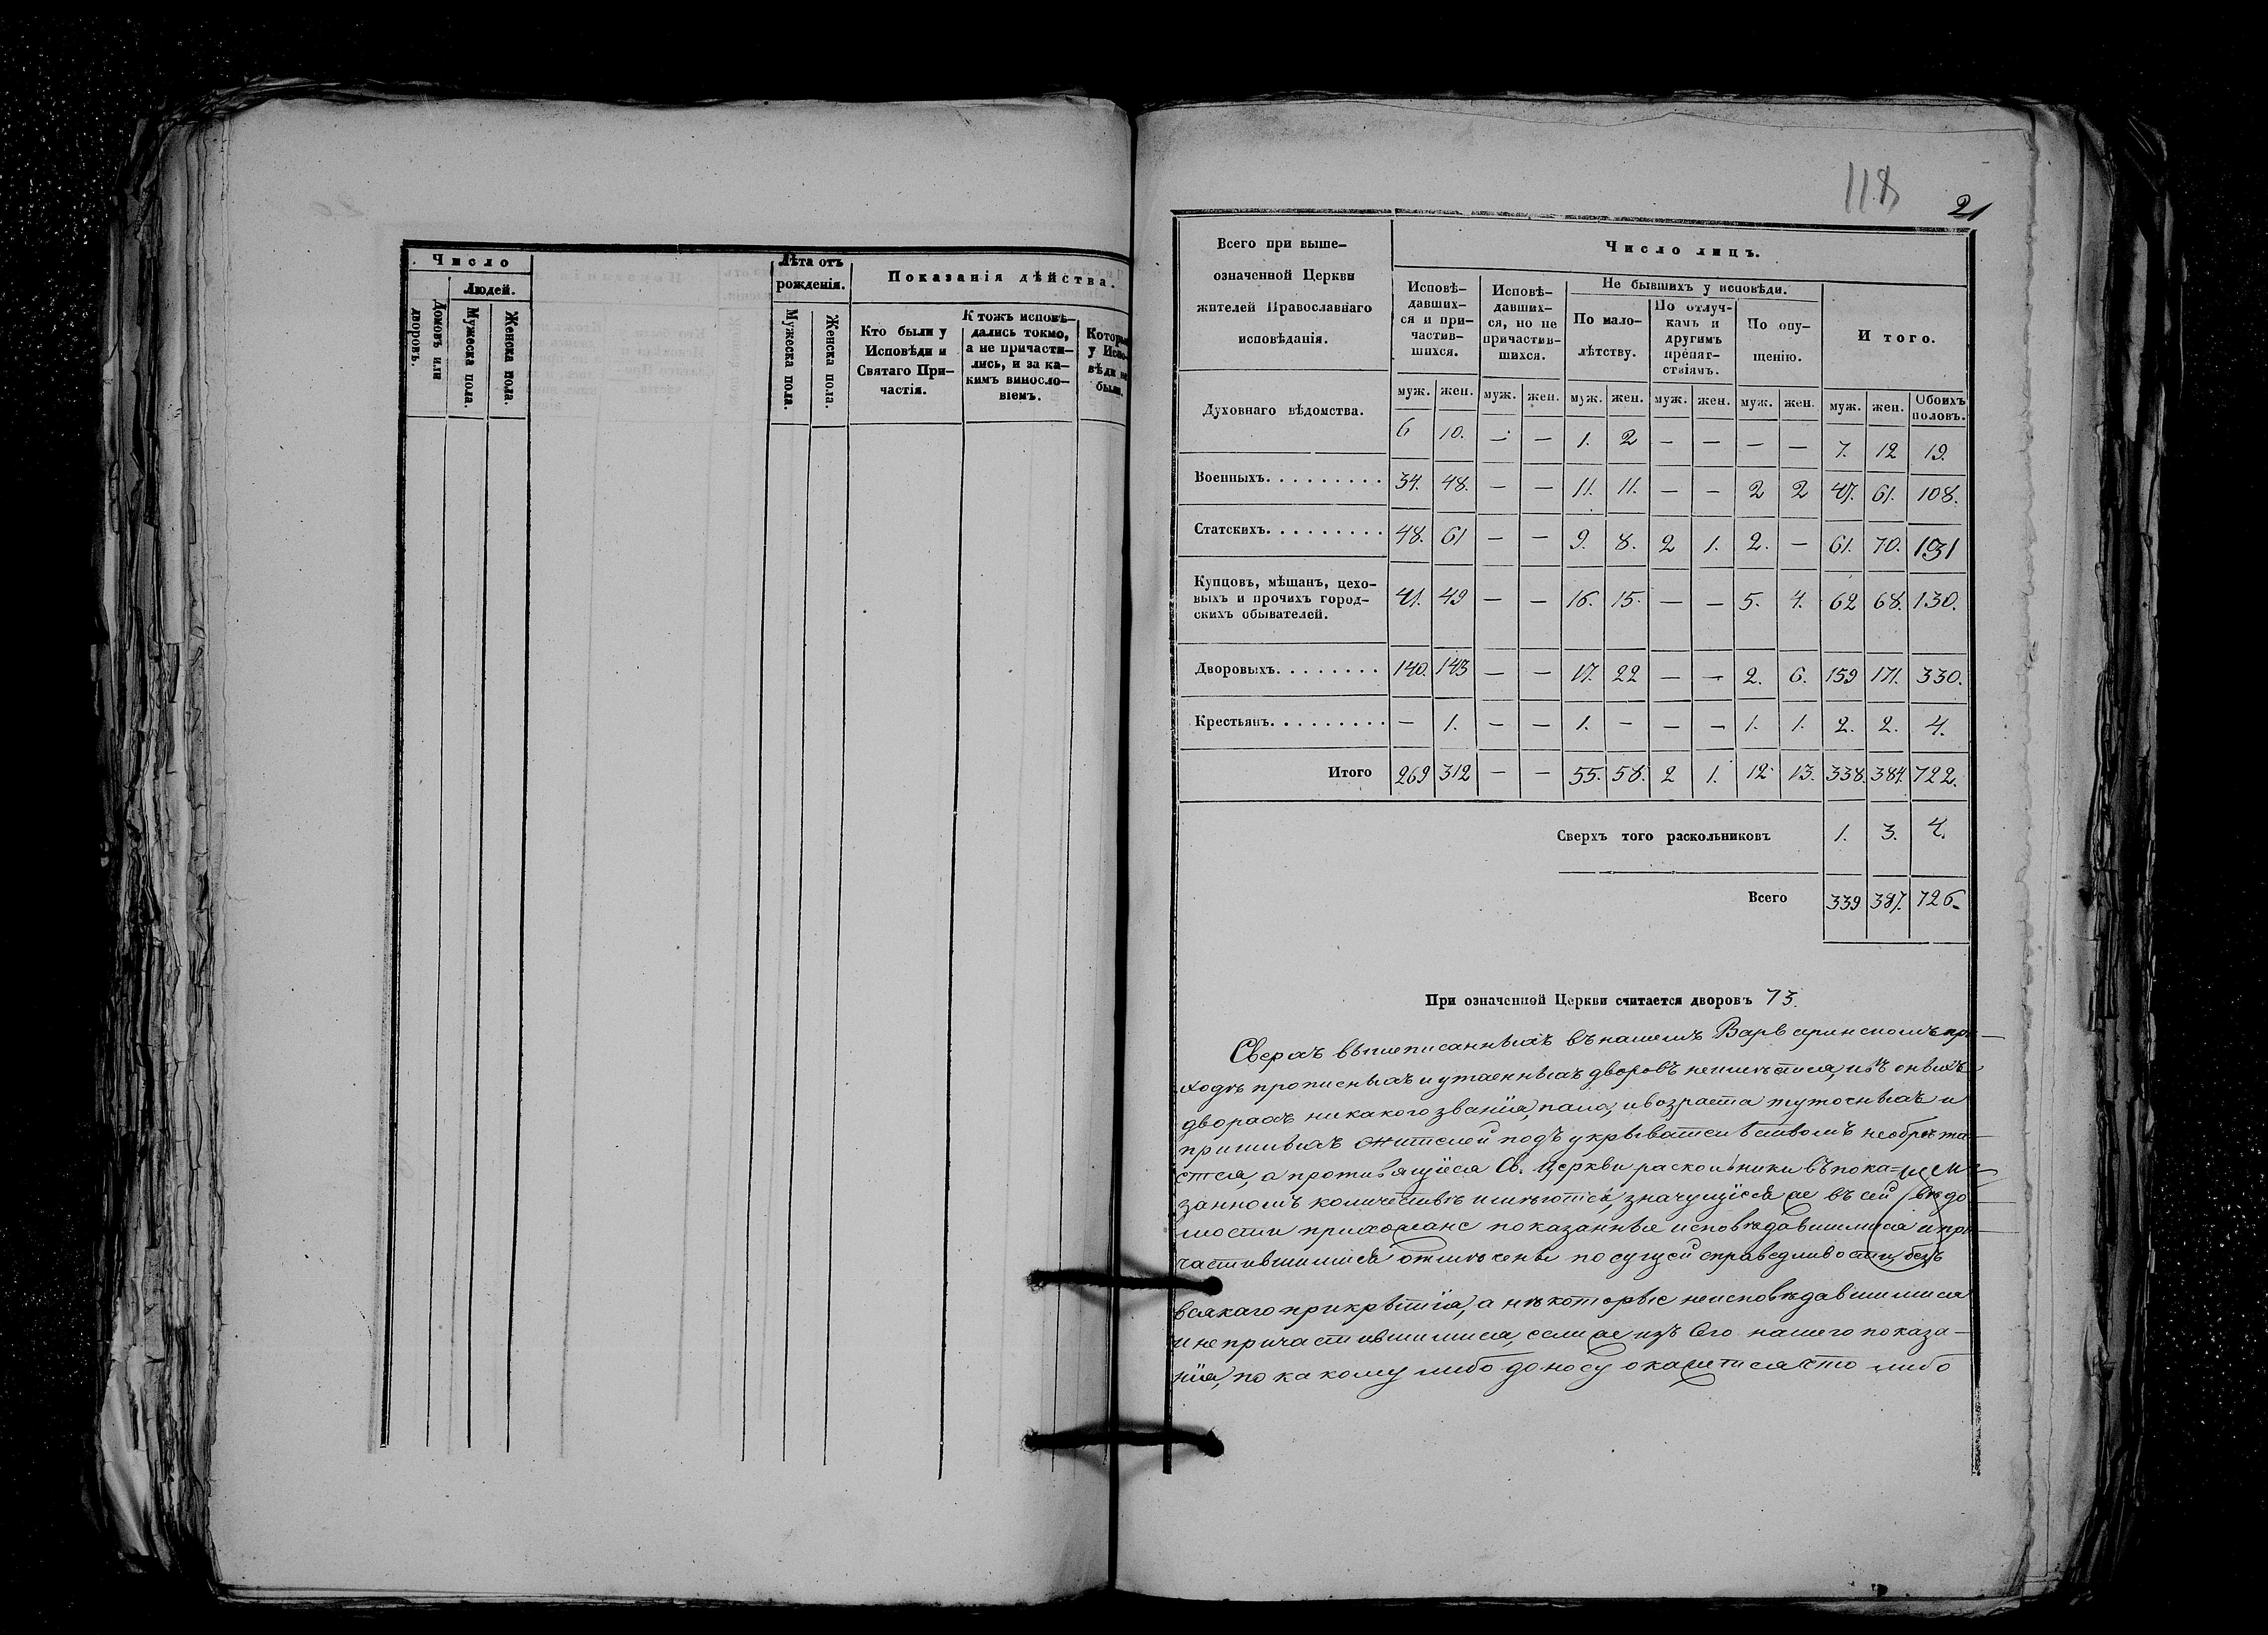 Число
Людей.
Домовъ или дворовъ.
Мужеска пола.
Женска пола.
Лѣта отъ рожденія.
Мужеска пола.
Женска пола.
Показанія дѣйства.
Кто были у
Исповѣди и
Святаго При-
частія.
К тожъ исповѣ-
дались токмо,
а не причасти-
лись, и за ка-
кимъ винословіемъ.
Которые
у Испо-
вѣди не
были.
118
21
Всего при выше-
означенной Церкви
жителей Православнаго
исповѣданія.
Число лицъ.
Исповѣ-
давших-
ся и при-
частив-
шихся.
Исповѣ-
давших-
ся, но не
причастив-
шихся.
Не бывшихъ у исповѣди.
По мало-
лѣтству.
По отлуч-
камъ и
другимъ
препят-
ствіямъ.
По опу-
щенію.
И того.
муж. жен. муж. жен. муж. жен. муж. жен. муж. жен. муж. жен. Обоихъ половъ.
Духовнаго вѣдомства. 6 10. — — 1. 2 — — — — 7. 12 19.
Военныхъ......... 34. 48. — — 11. 11. — — 2 2 47. 61. 108.
Статскихъ......... 48. 61 — — 9. 8. 2 1. 2. — 61. 70. 131
Купцовъ, мѣщанъ, цехо-
выхъ и прочихъ город-
скихъ обывателей. 41. 49 — — 16. 15. — — 5. 4. 62 68. 130.
Дворовыхъ........ 140. 143 — — 17. 22 — — 2. 6. 159 171. 330.
Крестьянъ......... — 1. — — 1. — — — 1. 1. 2. 2. 4.
Итого 269 312 — — 55. 58. 2 1. 12 13. 338. 384. 722.
Сверхъ того раскольниковъ 1. 3. 4.
Всего 339 387. 726.
При означенной Церкви считается дворовъ 73.
Сверхъ вышеписанныхъ въ нашемъ Варваринскомъ при-
ходѣ прописныхъ и утаенныхъ дворовъ неимѣтися, въ оныхъ
дворахъ никакого званія, пола, и возраста тутошныхъ и
пришлыхъ жителей подъ укрывательствомъ необрѣта-
ется, а противящіеся Св. Церкви раскольники въ пока-
занномъ количествѣ имѣются, значущіеся же въ сей вѣдо
мости прихожане показанные исповѣдавшимися и при-
частившимися отмѣчены по сущей справедливости, безъ
всякаго прикрытія, а нѣкоторые неисповѣдавшимися
и непричастившимися, если же изъ сего нашего показа-
нія, по какому либо доносу окажется что либо